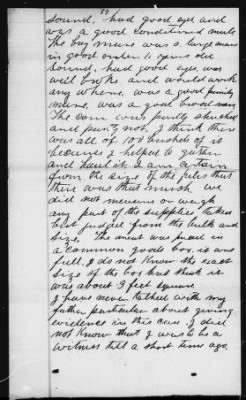 sound, had good eyes and
was a good conditioned mule
The bay mare was a large mare
in good order 11 years old
sound, had good eyes, was
well broke and would work
any where, was a good family
mare, was a good brood mare
The corn was partly shucked
and partly not, I think there
was all of 100 bushels of it
because I helped to gather
and haul it. I am certain
from the size of the piles that
there was that much we
did not measure or weigh
any part of the supplies taken
but judged from the bulk and
size. The meat was in a
a common goods box, is was
full. I do not know the exact
size of the box but think it
was about 3 feet square
I have never talked with my
father particular about giving
evidence in this case. I did
not know that I was to be a
witness till a short time ago.